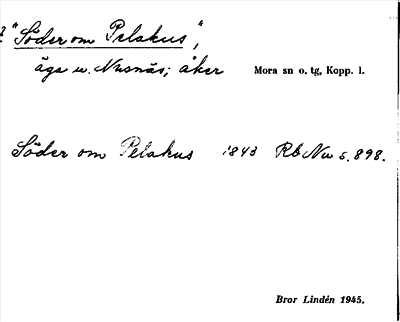 "Söder om Pelakus",
äga u. Nusnäs; åker Mora sn o. tg, Kopp. l.
Söder om Pelakus 1843 Rb Nu s. 898.
Bror Lindén 1945.